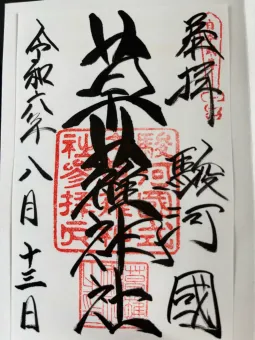 奉拝
駿河國
草薙神社
令和六年八月十三日